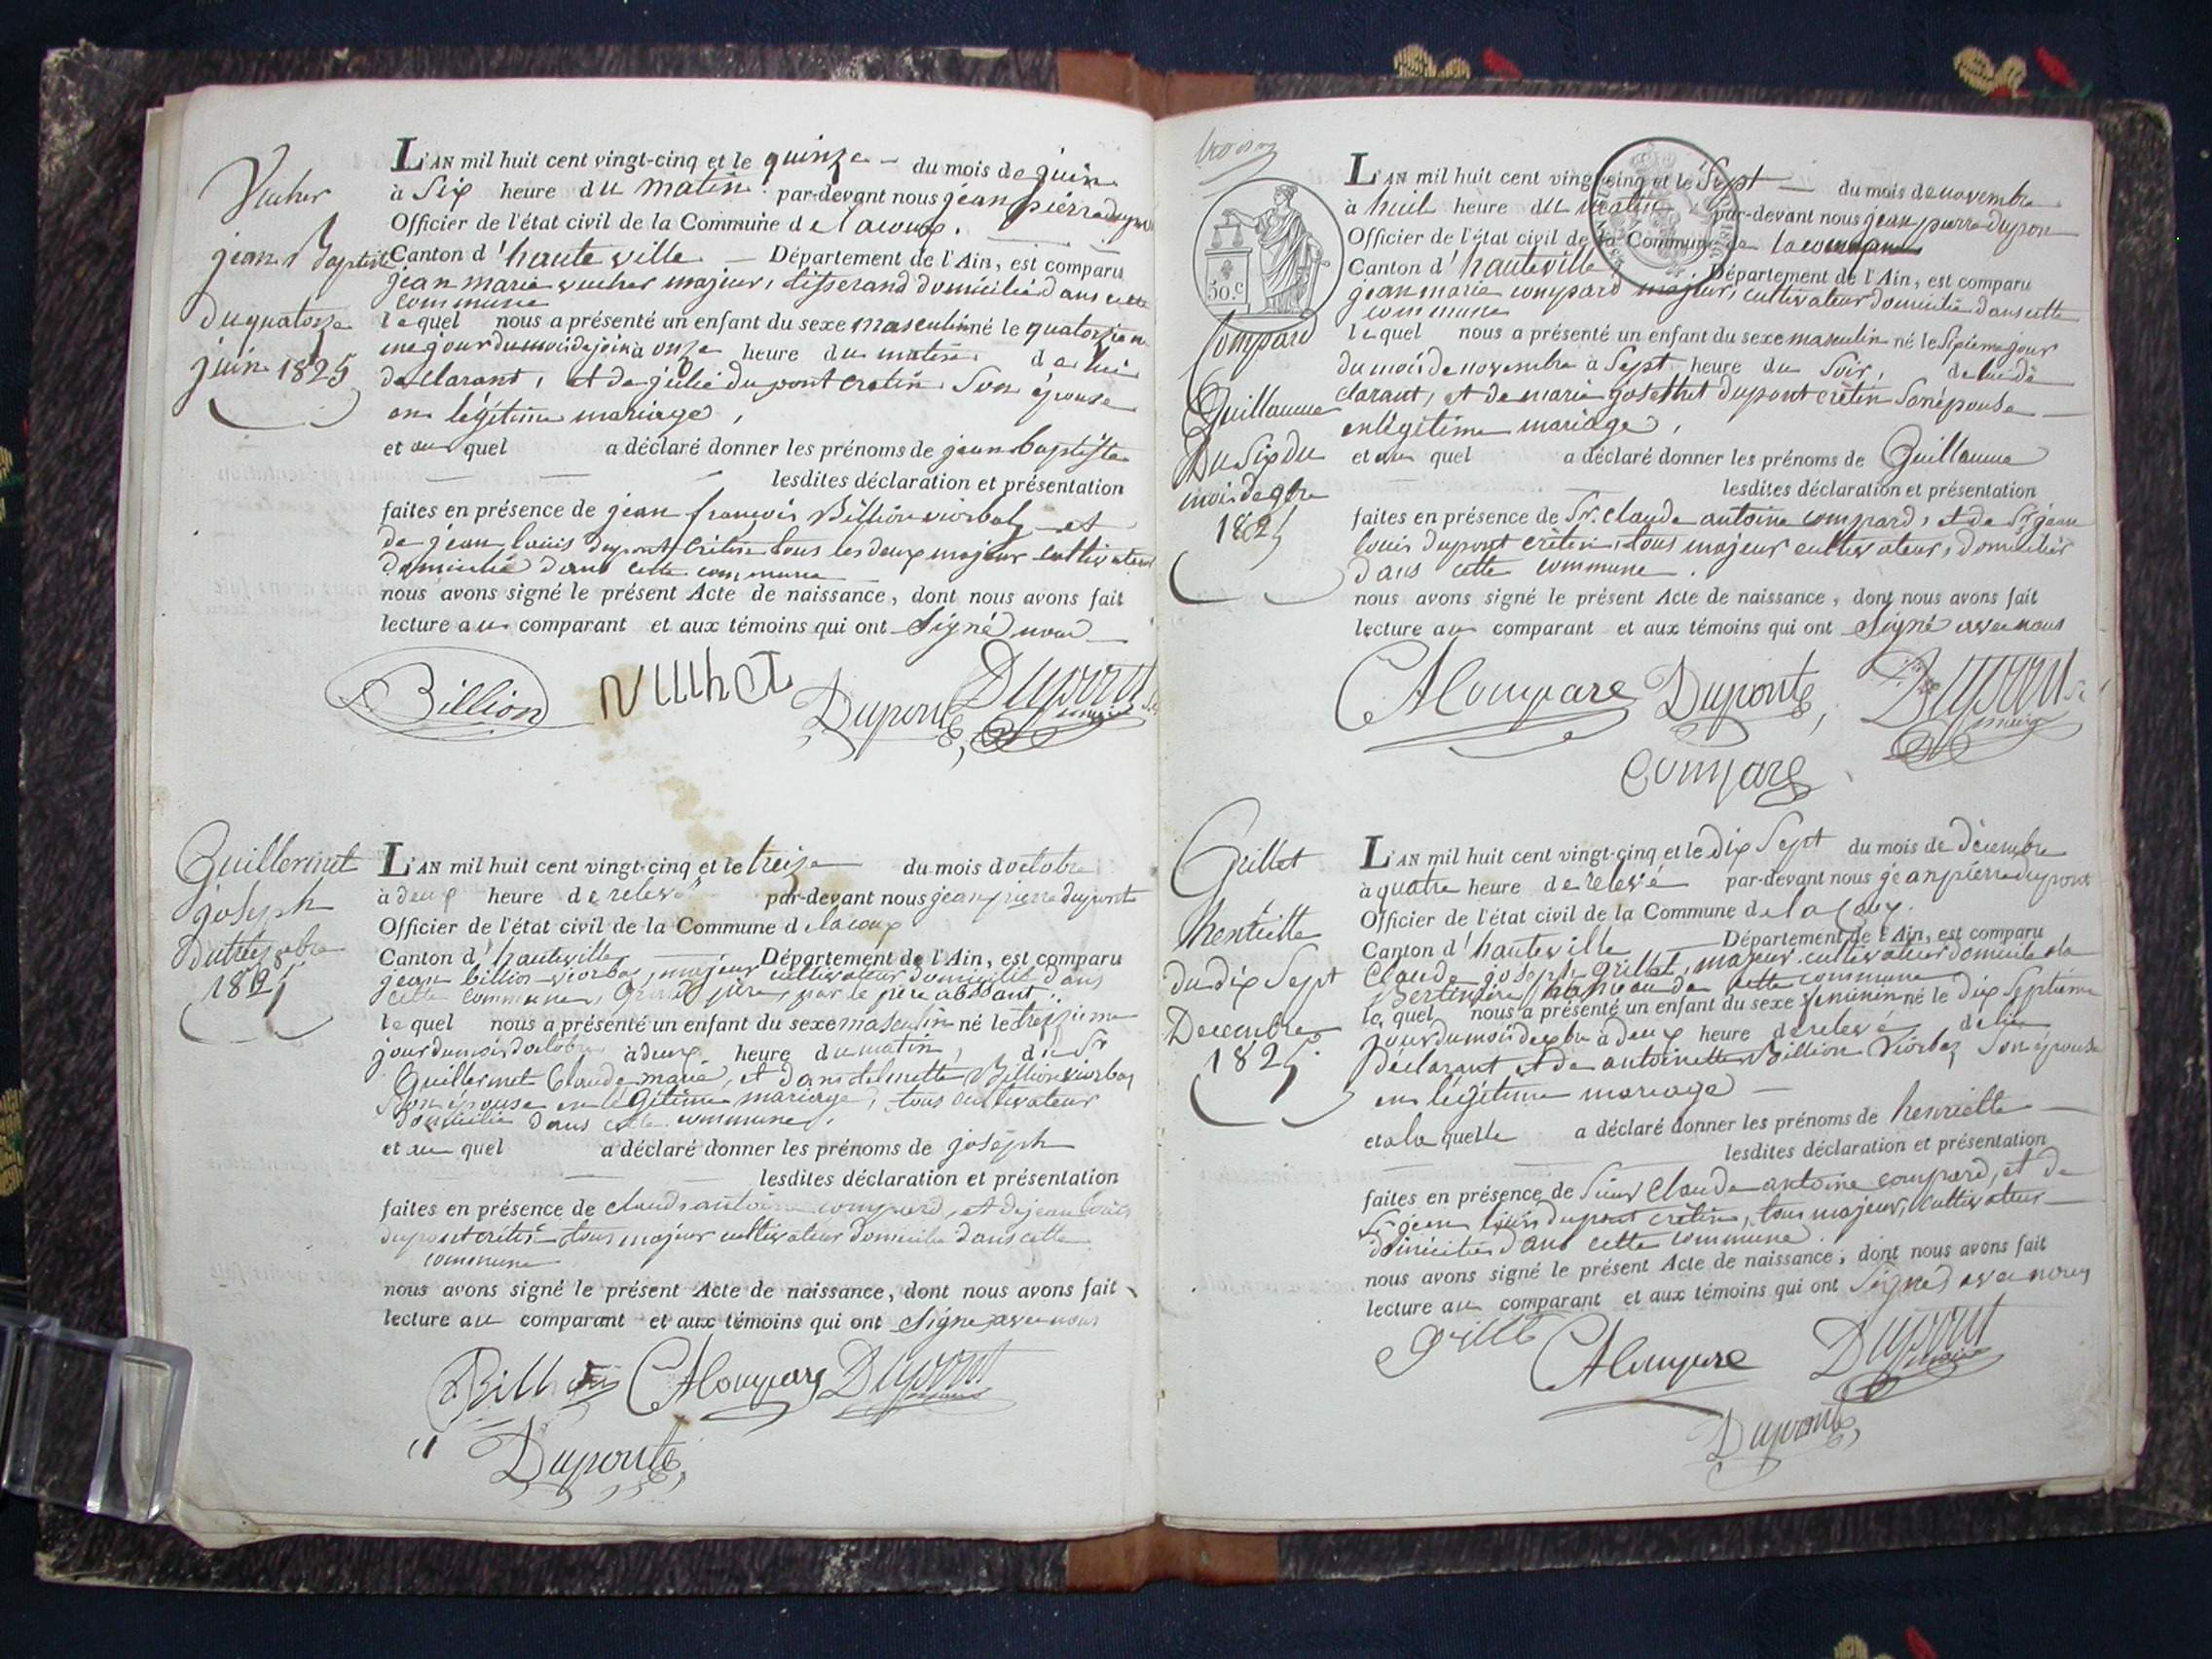 Vucher
jean Baptiste
du quatorze
juin 1825
L'AN mil huit cent vingt-cinq et le quinze du mois de juin
à Six heure du matin par-devant nous jean pierre dupont
Officier de l'état civil de la Commune de lacoux.
Canton d'hauteville Département de l'Ain, est comparu
jean marie vucher majeur, tisserand domicilié dans cette
commune
lequel nous a présenté un enfant du sexe masculin né le quatorzie
me jour du mois de join à onze heure du matin de lui
declarant, et de julie du pont cretin Son épouse
en légitime mariage,
et au quel a déclaré donner les prénoms de jean baptiste
lesdites déclaration et présentation
faites en présence de jean françois Billion viorbaly et
de jean louis dupont crétin tous les deux majeur cultivateur
domicilié dans cette commune
nous avons signé le présent Acte de naissance, dont nous avons fait
lecture au comparant et aux témoins qui ont Signé
Billion Vucher Dupont Dupont maire
Guillermet
joseph
du treize 8bre
1825
L'AN mil huit cent vingt-cinq et le treize du mois doctobre
à deux heure de relevé par-devant nous jean pierre dupont
Officier de l'état civil de la Commune de lacoux
Canton d'hauteville Département de l'Ain, est comparu
jean billion viorbaz, majeur cultivateur domicilié dans
cette commune, père, par le père abssant
lequel nous a présenté un enfant du sexe masculin né le treizieme
jour du mois doctobre à deux heure du matin, de Sr
Guillermet Claude marie, et Billion viorbaz
Son épouse en légitime mariage, tous cultivateur
domicilié dans cette commune.
et au quel a déclaré donner les prénoms de joseph
lesdites déclaration et présentation
faites en présence de claude antoine compard, et de jean louis
dupont crétin tous majeur cultivateur domicilié dans cette
commune
nous avons signé le présent Acte de naissance, dont nous avons fait
lecture au comparant et aux témoins qui ont Signé avec nous
Billion CACompare Dupont maire
Dupont
trois
50.c
Compard
Guillaume
Du Six du
mois de 9bre
1825
L'AN mil huit cent vingt-cinq et le Sept du mois de novembre
à huit heure du matin par-devant nous jean pierre dupon
Officier de l'état civil de la Commune de lacoux
Canton d'hauteville Département de l'Ain, est comparu
jean marie compard majeur, cultivateur domicilié dans cette
commune
lequel nous a présenté un enfant du sexe masculin né le Sixieme jour
du mois de novembre à Sept heure du Soir, de lui dé
clarant, et de marie josethet dupont crètin Son épouse
en légitime mariage,
et au quel a déclaré donner les prénoms de Guillaume
lesdites déclaration et présentation
faites en présence de Sr. claude antoine compard, et de Sr jean
louis dupont crètin, tous majeur cultivateur, domiciliés
dans cette commune.
nous avons signé le présent Acte de naissance, dont nous avons fait
lecture au comparant et aux témoins qui ont Signé avec nous
CACompare Dupont Dupont maire
Compard
Grillet
henriette
du dix Sept
Decembre
1825.
L'AN mil huit cent vingt-cinq et le dix Sept du mois de décembre
à quatre heure de relevé par-devant nous jean pierre dupont
Officier de l'état civil de la Commune de lacoux.
Canton d'hauteville Département de l'Ain, est comparu
Claude joseph grillet, majeur cultivateur domicile a la
hameau de cette commune
le quel nous a présenté un enfant du sexe feminin né le dix Septieme
jour du mois de xbre à deux heure de relevé de lui
déclarant et de antoinette Billion Viorbaz Son épouse
en légitime mariage
et a la quelle a déclaré donner les prénoms de henriette
lesdites déclaration et présentation
faites en présence de Sieur Claude antoine compard, et de
Sr jean louis dupont crétin, tous majeur, cultivateur
domiciliés dans cette commune.
nous avons signé le présent Acte de naissance, dont nous avons fait
lecture au comparant et aux témoins qui ont Signé avec nous
Grillet CACompare Dupont maire
Dupont